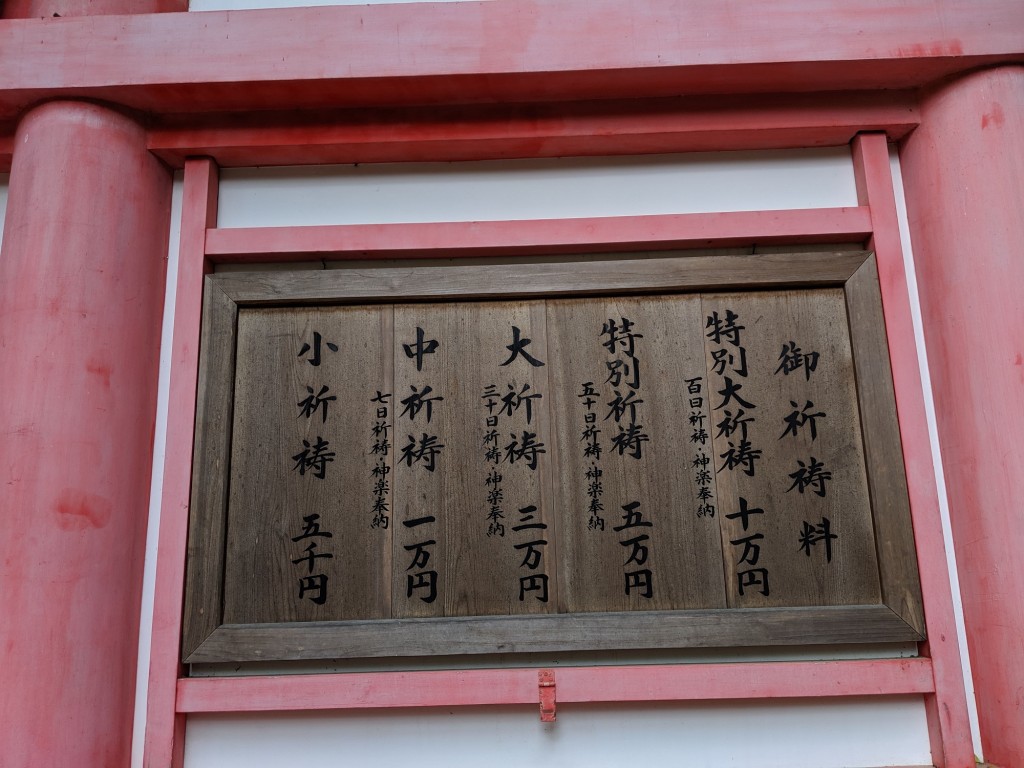 御祈祷料
特別大祈祷 十万円
百日祈祷・神楽奉納
特別祈祷 五万円
五十日祈祷・神楽奉納
大祈祷 三万円
三十日祈祷・神楽奉納
中祈祷 一万円
七日祈祷・神楽奉納
小祈祷 五千円